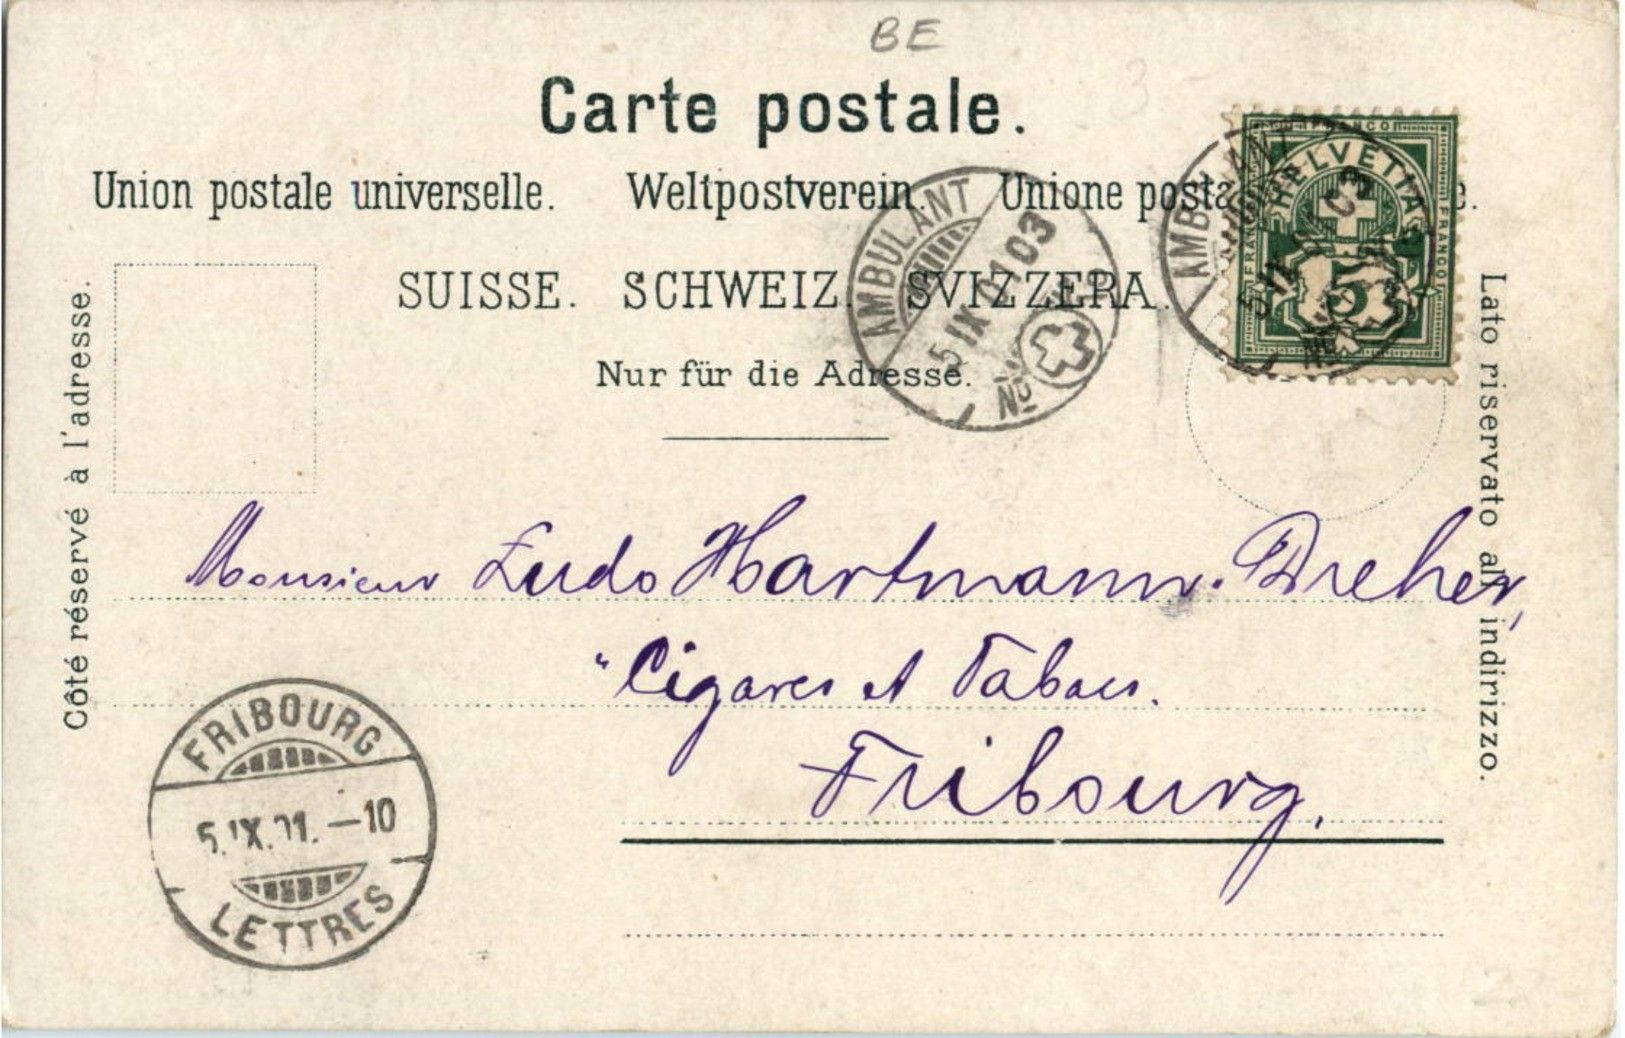 BE
Carte postale.
Union postale universelle. Weltpostverein. Unione
SUISSE. SCHWEIZ. SVIZZERA.
Nur für die Adresse.
Côté réservé à l'adresse.
Lato riservato all' indirizzo.
AMBULANT
5 IX 01 03
No
AMBULANT
03
No
FRANCO
HELVETIA
FRANCO
FRANCO
5
Monsieur Ludo Hartmann. Dreher,
"Cigares et Tabacs.
Fribourg.
FRIBOURG
5.IX.01.–10
LETTRES